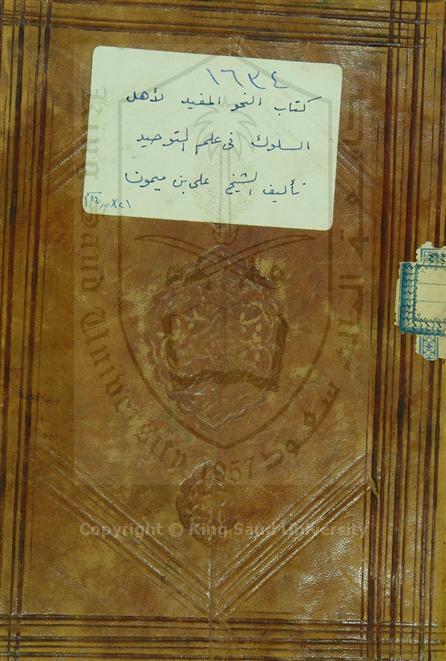 ١٦٣٤
كتاب النحو المفيد لأهل
السلوك فى علم التوحيد
تأليف الشيخ على بن ميمون
King Saud University
1957
جامعة الملك سعود
Copyright © King Saud University